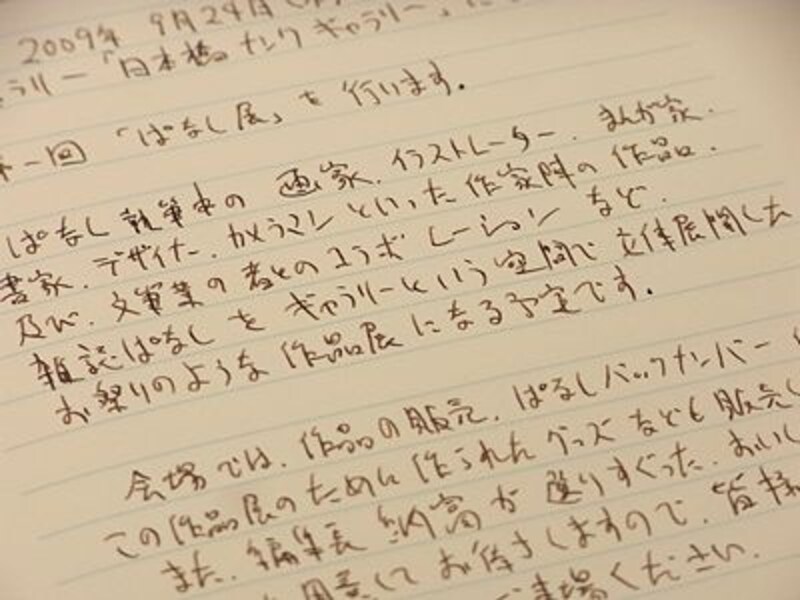 2009年 9月24日
ラリー「日本橋 ナンワ ギャラリー」に
第一回 「ぱなし展」を 行います。
ぱなし執筆中の 画家、イラストレーター、まんが家、
書家、デザイナー、カメラマン といった 作家陣の 作品、
及び、文筆業の 者とのコラボ レーション など、
雑誌ぱなし を ギャラリーという 空間で 立体展開した
お祭りのような 作品展 になる予定です。
会場では、作品の販売、ぱなしバックナンバー
この作品展のために 作られた グッズ なども 販売し
また、編集長 納富が 選りすぐった、おいし
用意して お待ちしますので、皆様
ご来場ください。